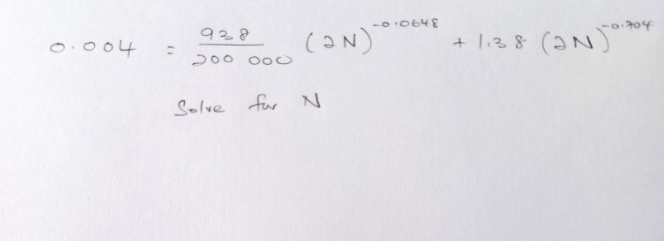 0.004 = 938/200 000 (2N)^-0.0648 + 1.38 (2N)^-0.704
Solve for N